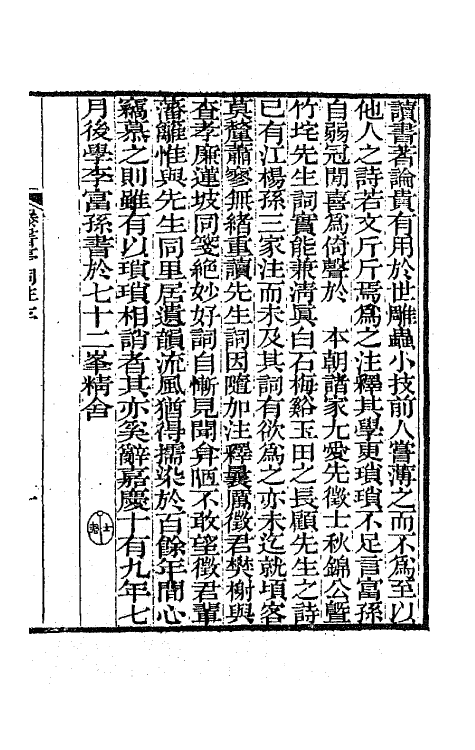 讀書著論貴有用於世雕蟲小技前人嘗薄之而不爲至以
他人之詩若文斤斤焉爲之注釋其學更瑣瑣不足言富孫
自弱冠閒喜爲倚聲於　本朝諸家尤愛先徵士秋錦公曁
竹垞先生詞實能兼淸眞白石梅谿玉田之長顧先生之詩
已有江楊孫三家注而未及其詞有欲爲之亦未迄就頃客
莫釐蕭寥無緒重讀先生詞因隨加注釋曩厲徵君樊榭與
查孝廉蓮坡同箋絕妙好詞自慚見聞弇陋不敢望徵君輩
藩籬惟與先生同里居遺韻流風猶得擩染於百餘年間心
竊慕之則雖有以瑣瑣相誚者其亦奚辭嘉慶十有九年七
月後學李富孫書於七十二峯精舍